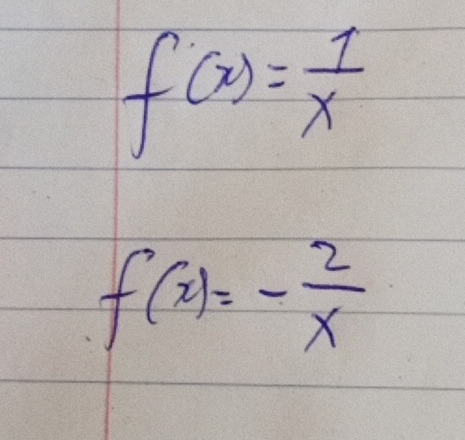 f(x) = 1/x
f(x) = - 2/x